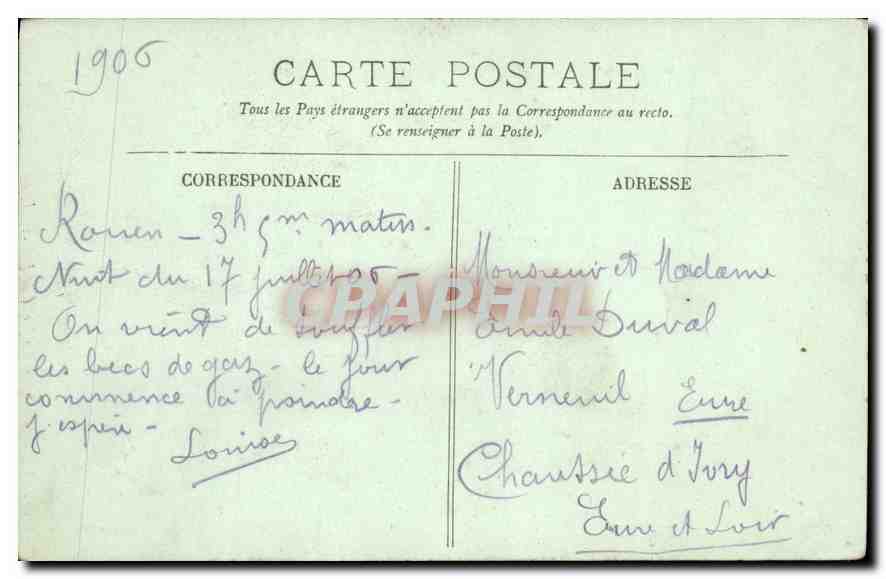 1906
CARTE POSTALE
Tous les Pays étrangers n'acceptent pas la Correspondance au recto.
(Se renseigner à la Poste).
CORRESPONDANCE
Rouen - 3h 5m matin.
Nuit du 17 juillet 06 -
On vient de souffler
les becs de gaz - le jour
commence à poindre -
J'espère -
Louise
ADRESSE
Monsieur et Madame
Emile Duval
Verneuil Eure
Chaussée d'Ivry
Eure et Loir
CPAPHIL